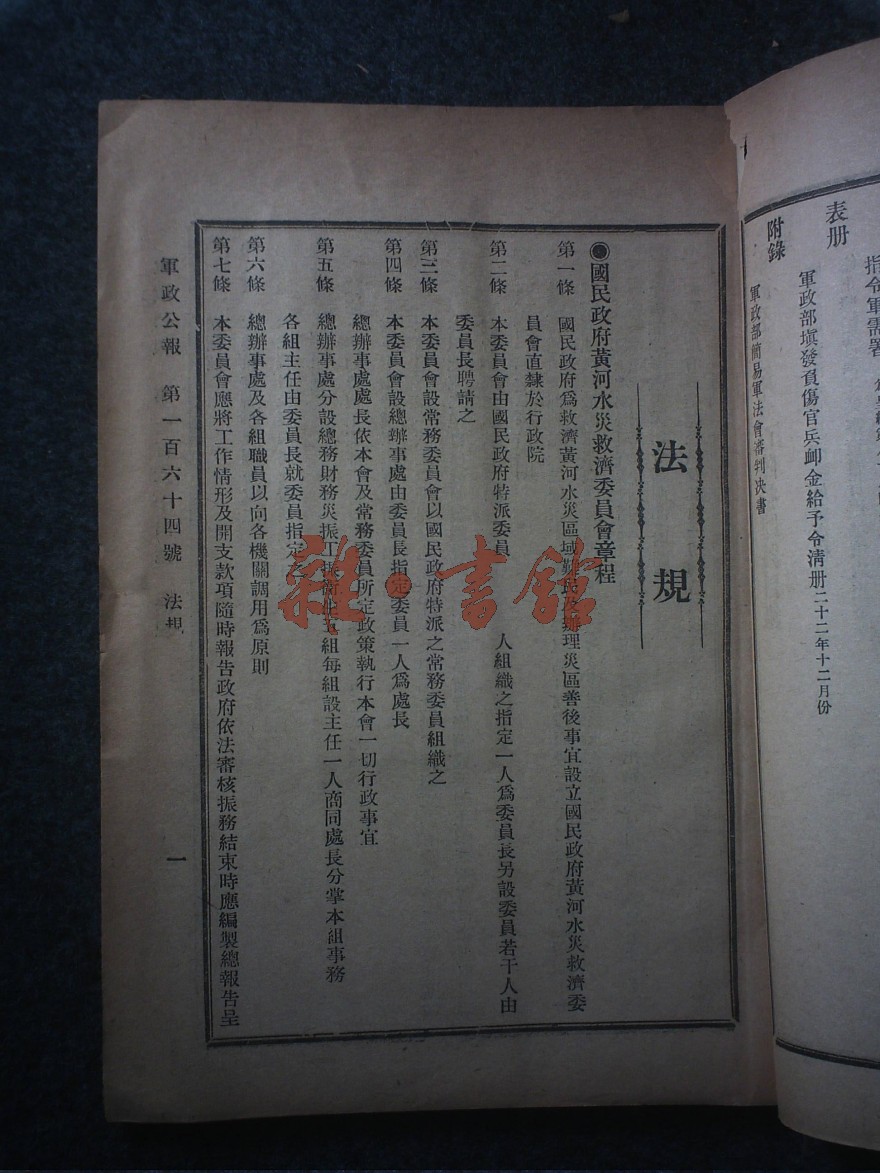 表册
指令軍需署
軍政部塡發負傷官兵卹金給予令清册二十二年十二月份
附錄
軍政部簡易軍法會審判决書
法規
◉國民政府黃河水災救濟委員會章程
第一條 國民政府爲救濟黃河水災區域難民及辦理災區善後事宜設立國民政府黃河水災救濟委
員會直隸於行政院
第二條 本委員會由國民政府特派委員 人組織之指定一人爲委員長另設委員若干人由
委員長聘請之
第三條 本委員會設常務委員會以國民政府特派之常務委員組織之
第四條 本委員會設總辦事處由委員長指定委員一人爲處長
總辦事處處長依本會及常務委員所定政策執行本會一切行政事宜
第五條 總辦事處分設總務財務災振工振衞生五組每組設主任一人商同處長分掌本組事務
各組主任由委員長就委員指定之
第六條 總辦事處及各組職員以向各機關調用爲原則
第七條 本委員會應將工作情形及開支款項隨時報告政府依法審核振務結束時應編製總報告呈
軍政公報 第一百六十四號 法規 一
雜·書館